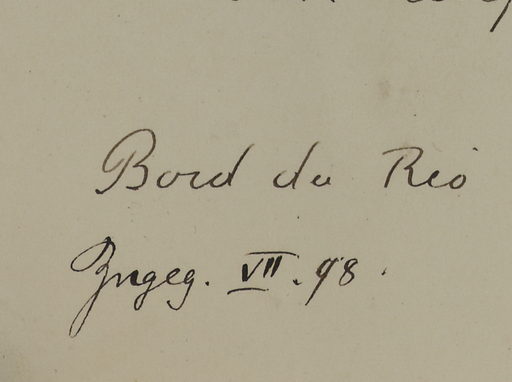 Bord du Rio
Ingeg. VII. 98.